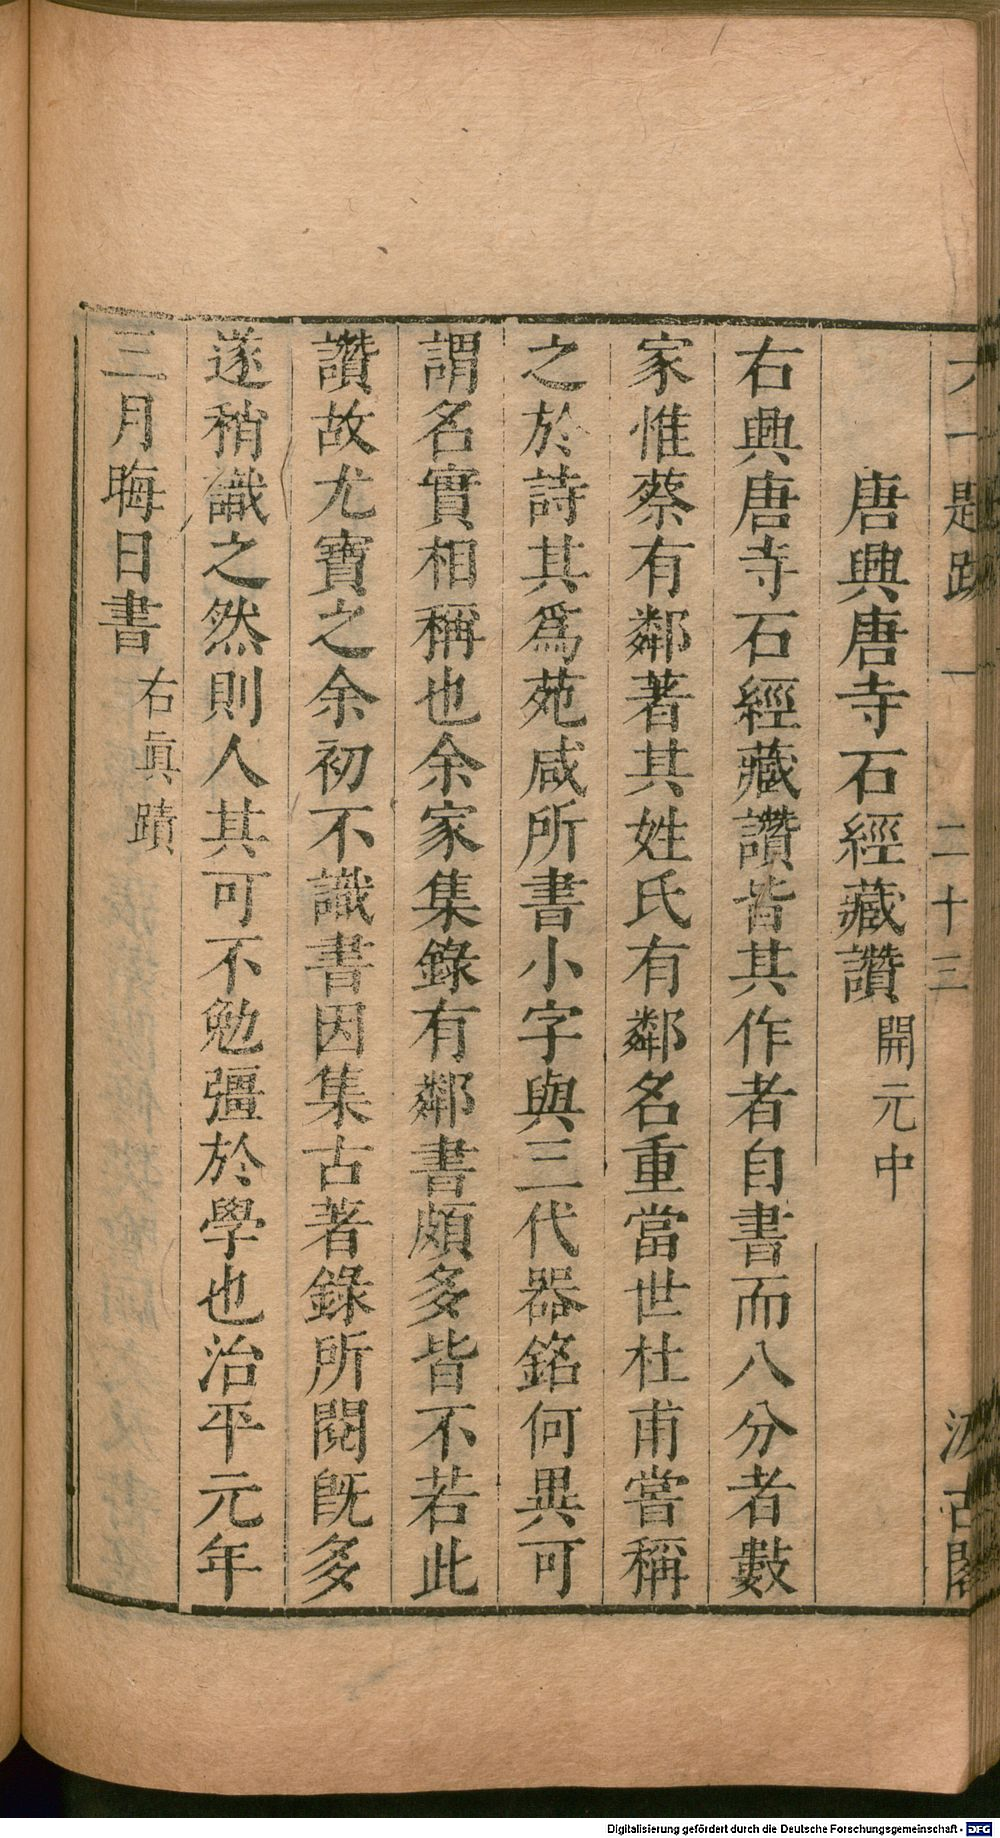 六一題跋 一 二十三 汲古閣
唐興唐寺石經藏讚 開元中
右興唐寺石經藏讚皆其作者自書而八分者數
家惟蔡有鄰著其姓氏有鄰名重當世杜甫嘗稱
之於詩其爲苑咸所書小字與三代器銘何異可
謂名實相稱也余家集錄有鄰書頗多皆不若此
讚故尤寶之余初不識書因集古著錄所閱旣多
遂稍識之然則人其可不勉彊於學也治平元年
三月晦日書 右眞蹟
Digitalisierung gefördert durch die Deutsche Forschungsgemeinschaft - DFG